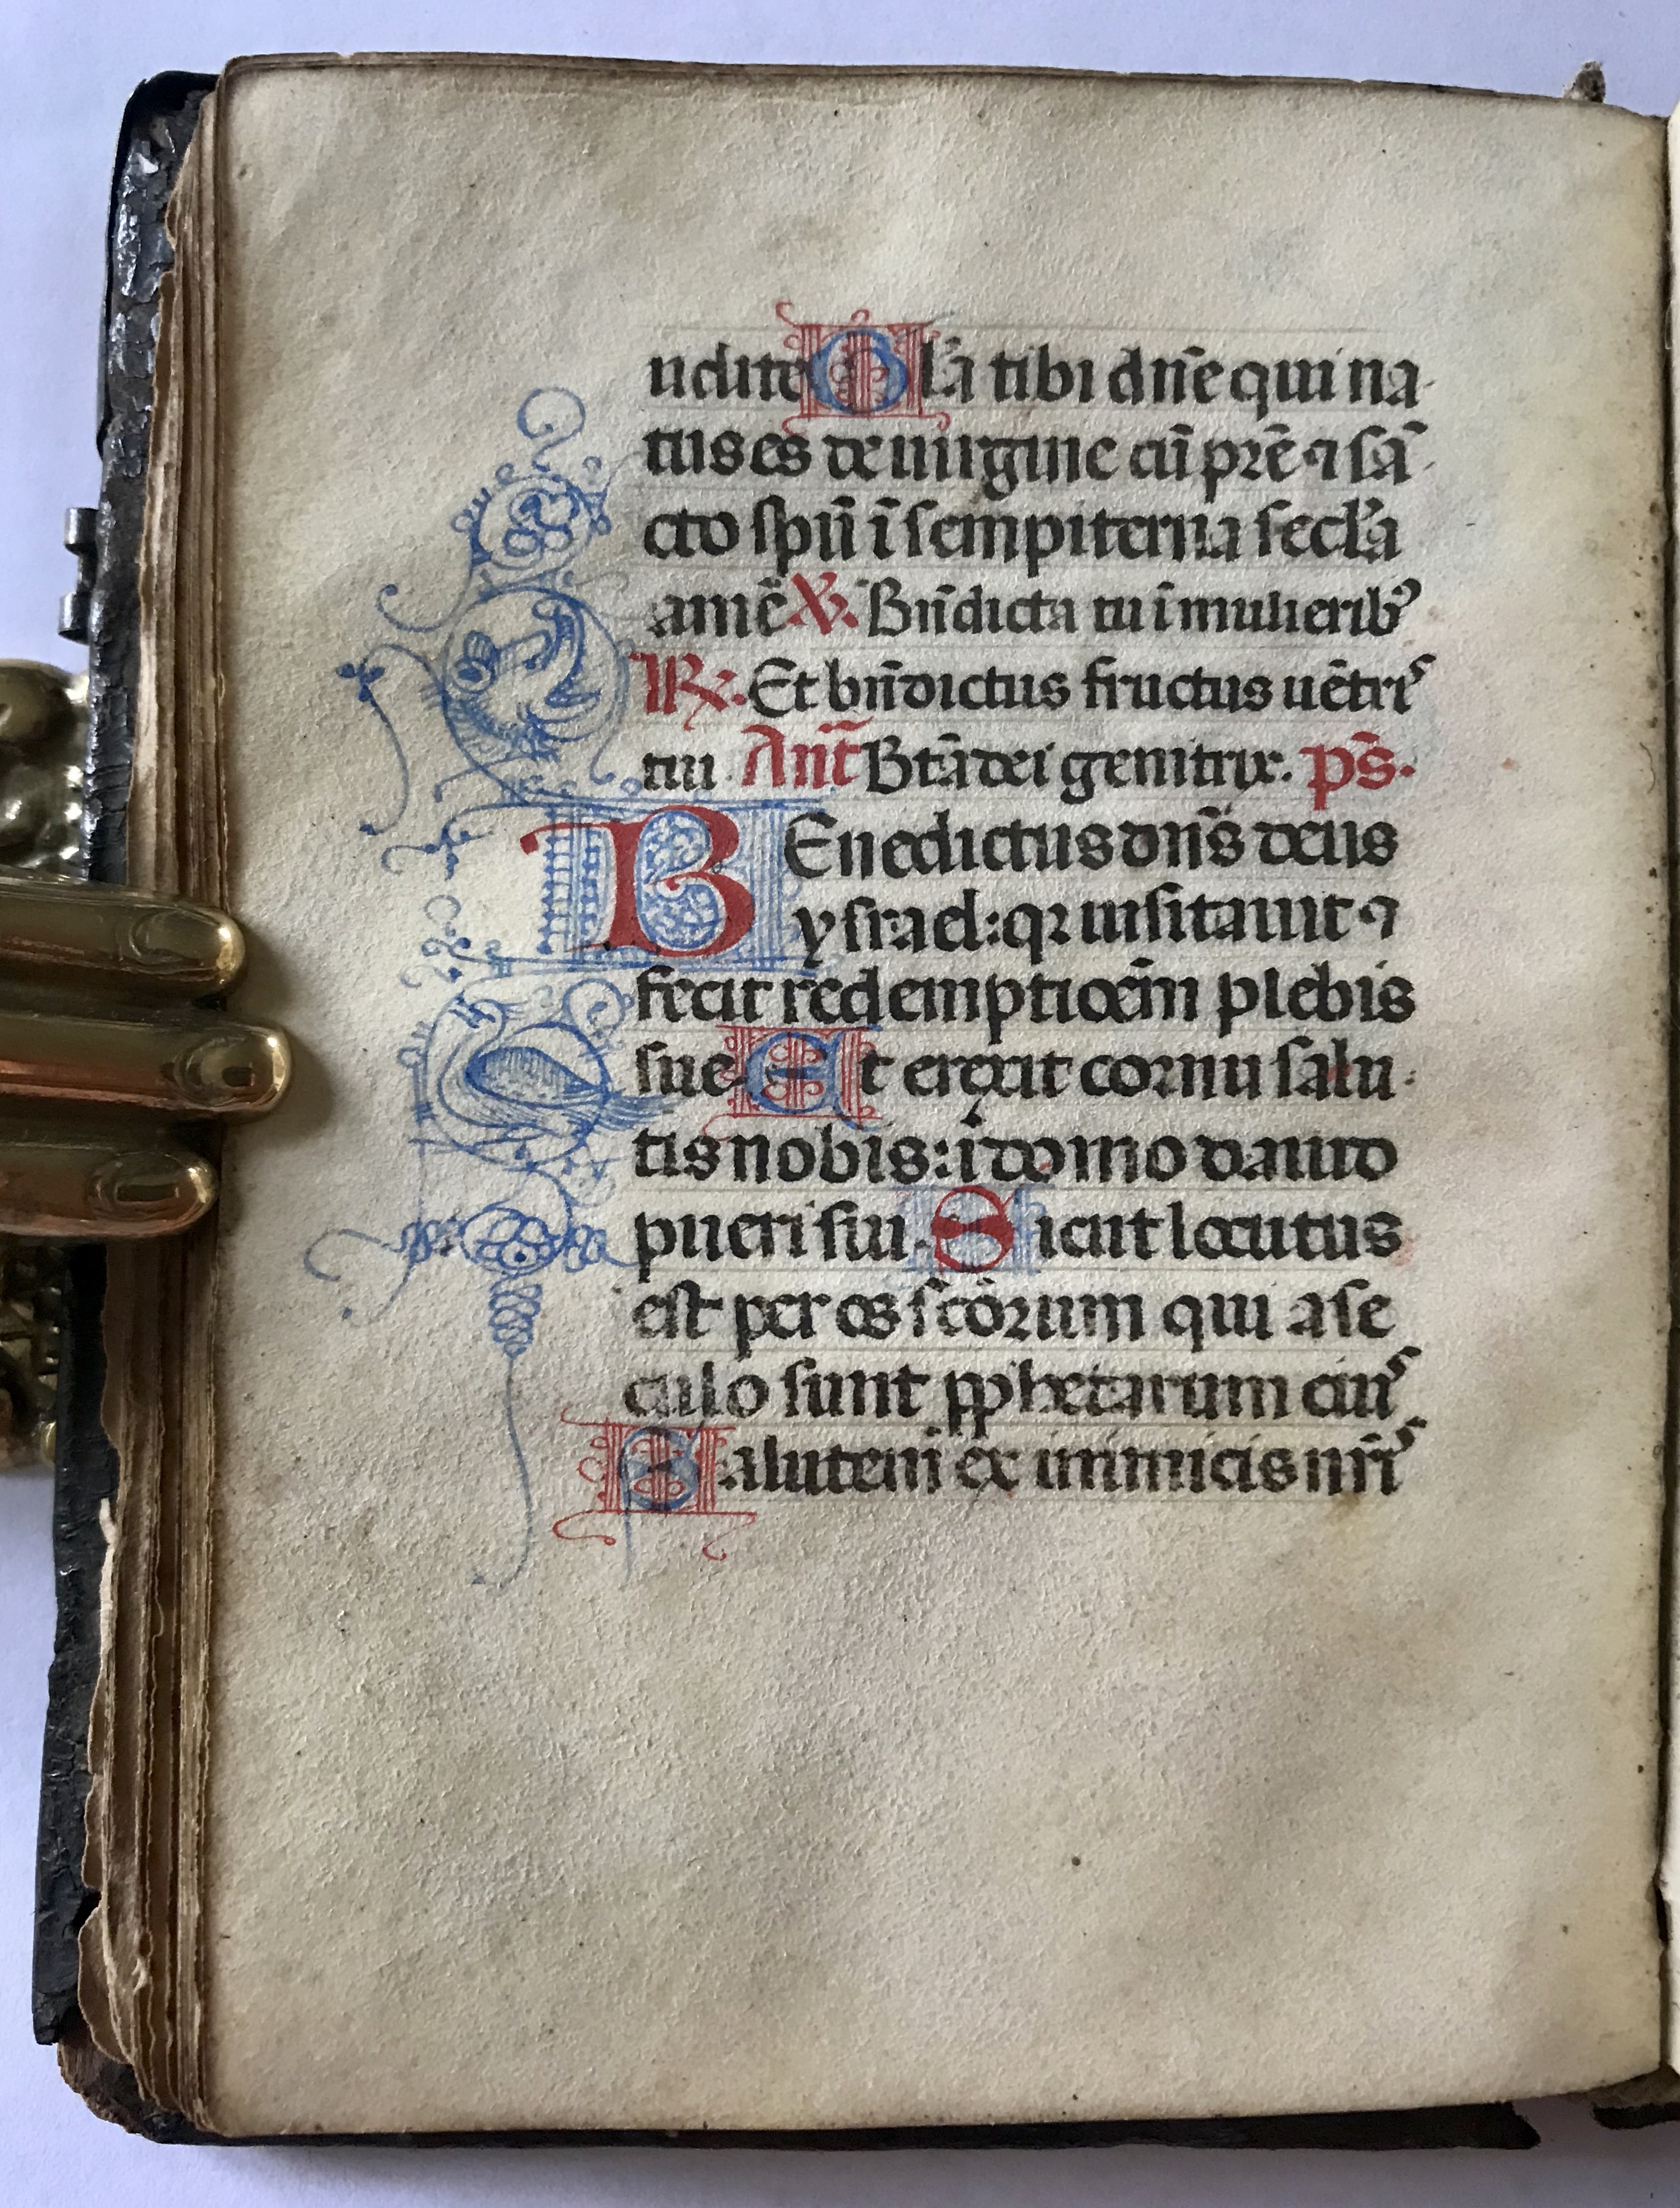 udite Gl'a tibi dn̄e qui na
tus es de uirgine cū pr̄e ⁊ sā
cto sp̄u ī sempiterna secl'a
amē ℣. Bn̄dicta tu ī mulierib⁹
℟. Et bn̄dictus fructus uētrꝭ
tui. Ant̄ Btā dei genitrix. ps̄.
BEnedictus dn̄s deus
ysrael: qꝛ uisitauit ⁊
fecit redemptioēm plebis
sue Et erexit cornu salu
tis nobis: ī domo dauid
pueri sui. Sicut locutus
est per os sc̄oꝛum qui a se
culo sunt ꝓphetarum eiuꝰ
Salutem ex inimicis nr̄iꝰ